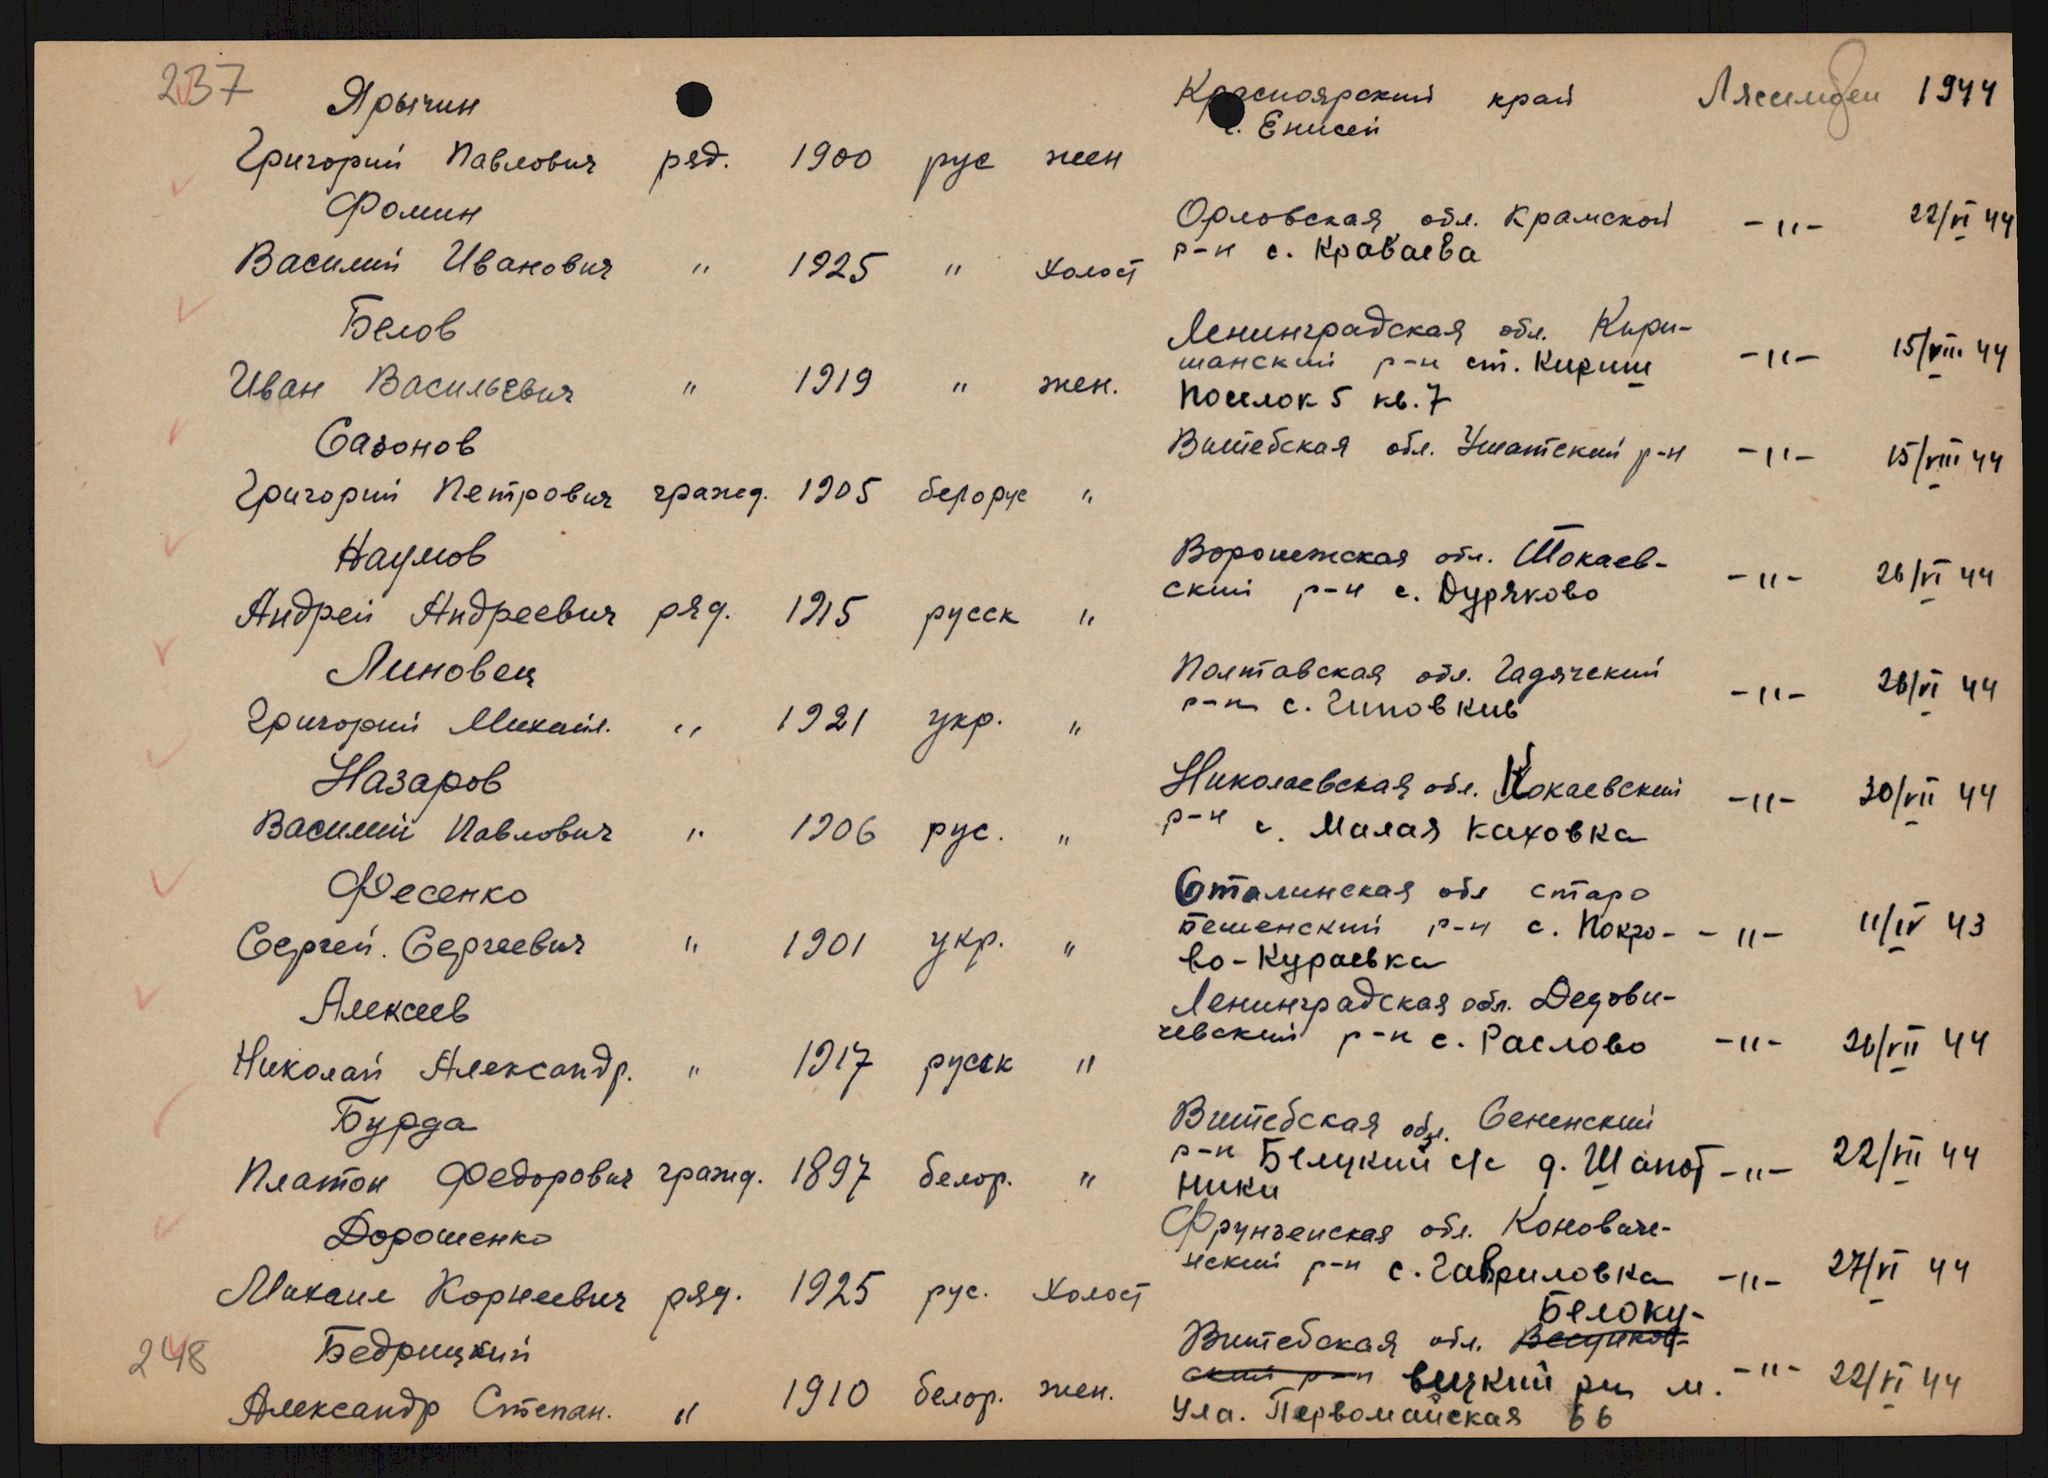 237 Ярычин Красноярский край 1944
г. Енисей
Григорий Павлович ряд. 1900 рус жен
Фомин Орловская обл. Крамской -"- 22/VI 44
р-н с. Краваева
Василий Иванович " 1925 " холост
Белов Ленинградская обл. Кири-
шанский р-н ст. Кириш -"- 15/VIII 44
Иван Васильевич " 1919 " жен. Поселок 5 кв. 7
Сазонов Витебская обл. Ушатский р-н -"- 15/VIII 44
Григорий Петрович гражд. 1905 белорус "
Наумов Воронежская обл. Токаев-
ский р-н с. Дуряково -"- 26/VI 44
Андрей Андреевич ряд. 1915 русск "
Линовец Полтавская обл. Гадячский -"- 26/VI 44
р-н с.
Григорий Михайл. " 1921 укр. "
Назаров Николаевская обл. Кокаевский -"- 30/VII 44
р-н с. Малая Каховка
Василий Павлович " 1906 рус. "
Фесенко Сталинская обл старо
бешенский р-н с. Покро- -"- 11/IV 43
Сергей. Сергеевич " 1901 укр. " во-Кураевка
Алексеев Ленинградская обл. Дедови-
чевский р-н с. Раслово -"- 26/VII 44
Николай Александр. " 1917 русск "
Бурда Витебская обл. Сененский
р-н Белицкий с/с д. Шапот -"- 22/VII 44
Платон Федорович гражд. 1897 белор. " ники
Дорошенко Фрунзенская обл. Коновиче-
нский р-н с. Гавриловка -"- 27/VI 44
Михаил Корнеевич ряд. 1925 рус. холост
Белоку-
248 Бедрицкий Витебская обл.
ский р-н вицкий рн м. -"- 22/VI 44
Александр Степан. " 1910 белор. жен. Ула. Первомайская 66